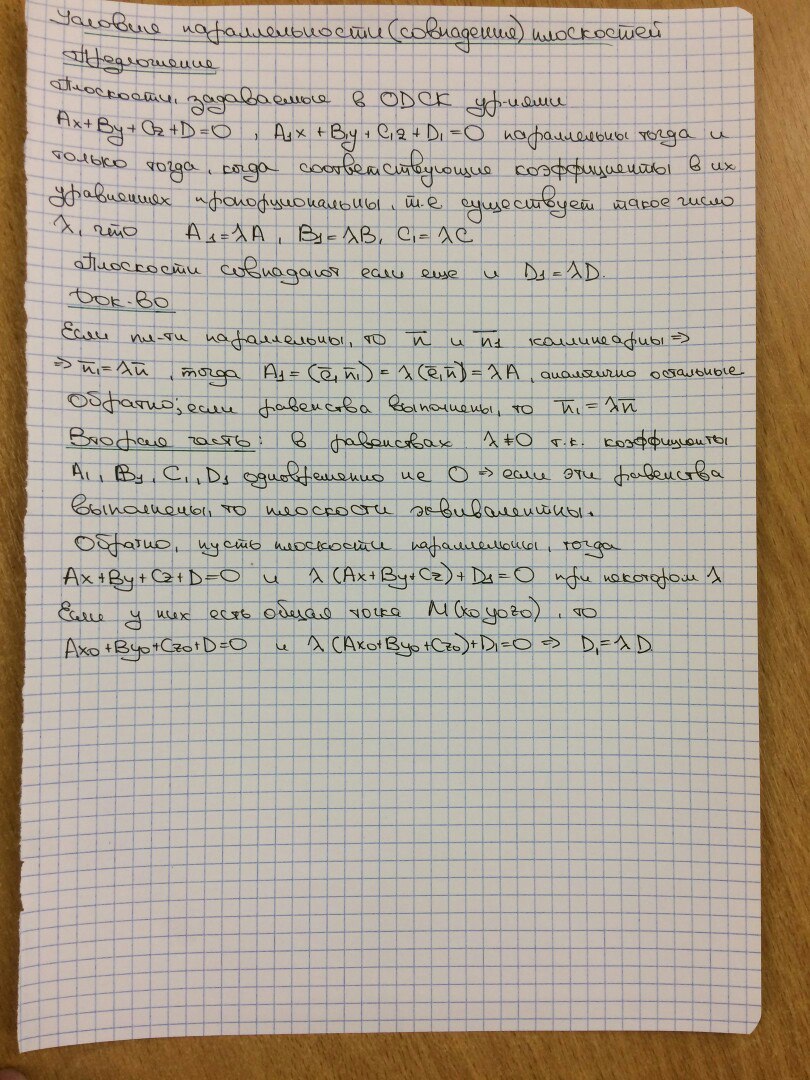 Условие параллельности (совпадение) плоскостей
Предложение
Плоскости, задаваемые в ОДСК ур-иями
Ax+By+Cz+D=0, A₁x+B₁y+C₁z+D₁=0 параллельны тогда и
только тогда, когда соответствующие коэффициенты в их
уравнениях пропорциональны, т.е существует такое число
λ, что A₁=λA, B₁=λB, C₁=λC
Плоскости совпадают если еще и D₁=λD.
Док-во
Если пл-ти параллельны, то n̅ и n̅₁ коллинеарны ⇒
⇒ n̅₁=λn̅, тогда A₁=(e̅₁n̅₁)=λ(e̅₁n̅)=λA, аналогично остальные
Обратно; если равенства выполнены, то n̅₁=λn̅
Вторая часть: в равенствах λ≠0 т.к. коэффициенты
A₁, B₁, C₁, D₁ одновременно не 0 ⇒ если эти равенства
выполнены, то плоскости эквивалентны.
Обратно, пусть плоскости параллельны, тогда
Ax+By+Cz+D=0 и λ(Ax+By+Cz)+D₁=0 при некотором λ
Если у них есть общая точка M(x₀y₀z₀), то
Ax₀+By₀+Cz₀+D=0 и λ(Ax₀+By₀+Cz₀)+D₁=0 ⇒ D₁=λD